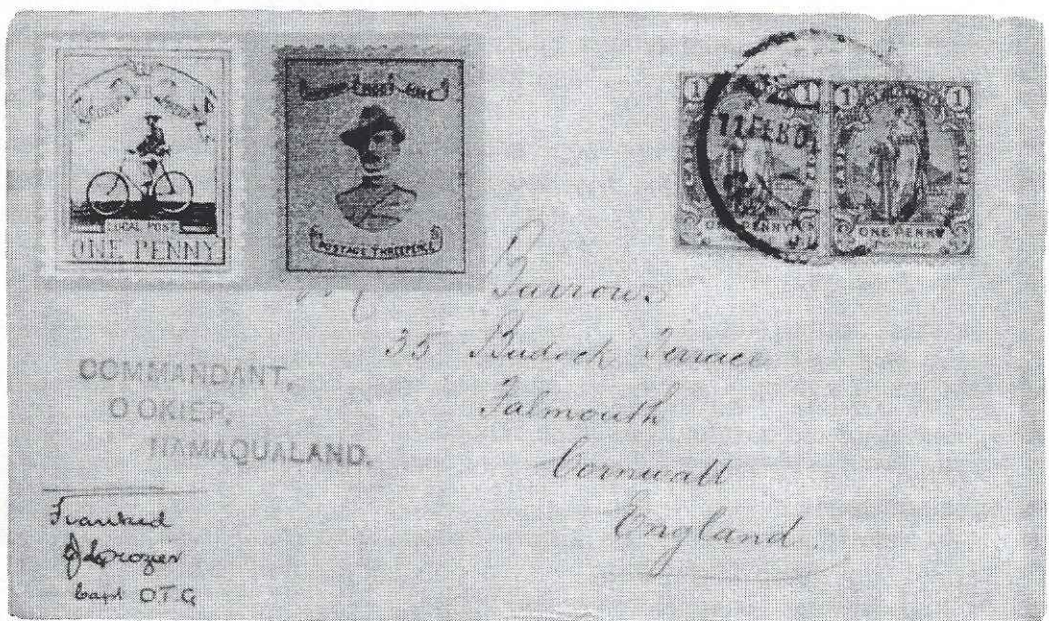 LOCAL POST
ONE PENNY
POSTAGE THREEPENCE
1 1
ONE PENNY
1 1
ONE PENNY
POSTAGE
11 FE
Barrow
35 Budock Terrace
Falmouth
Cornwall
England
COMMANDANT,
O OKIEP,
NAMAQUALAND.
Franked
Capt OTG